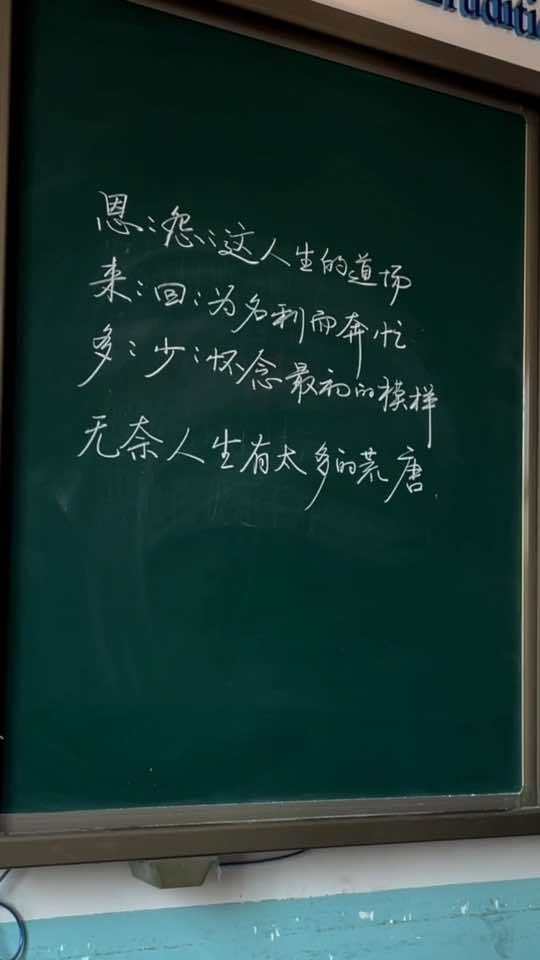 Eruditi
恩:怨:这人生的道场
来:回:为名利而奔忙
多:少:怀念最初的模样
无奈人生有太多的荒唐.